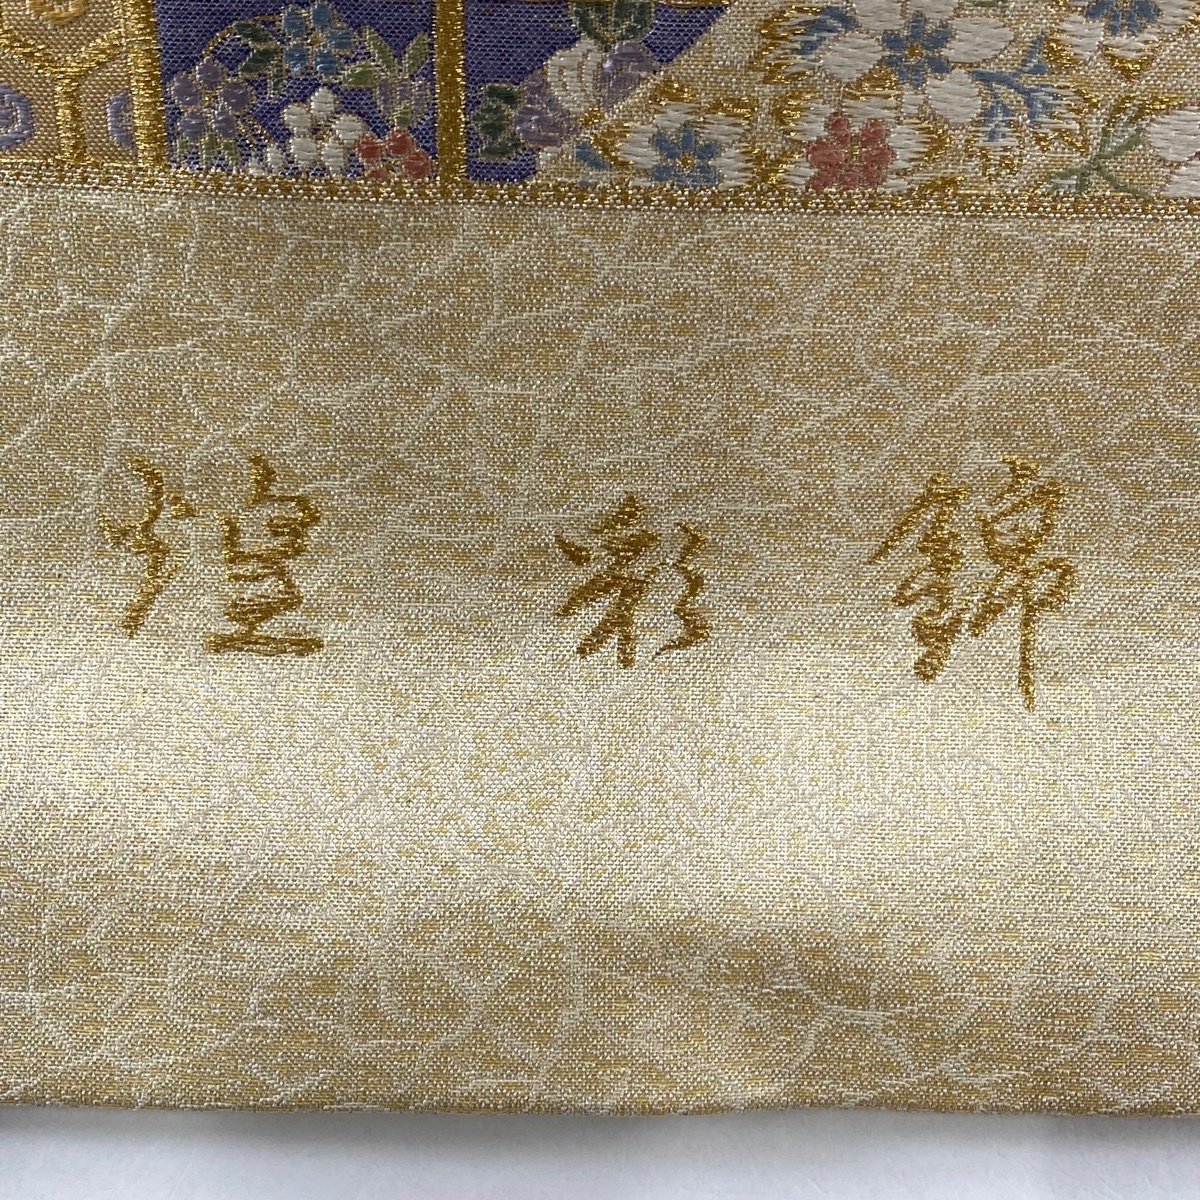 錦彩煌